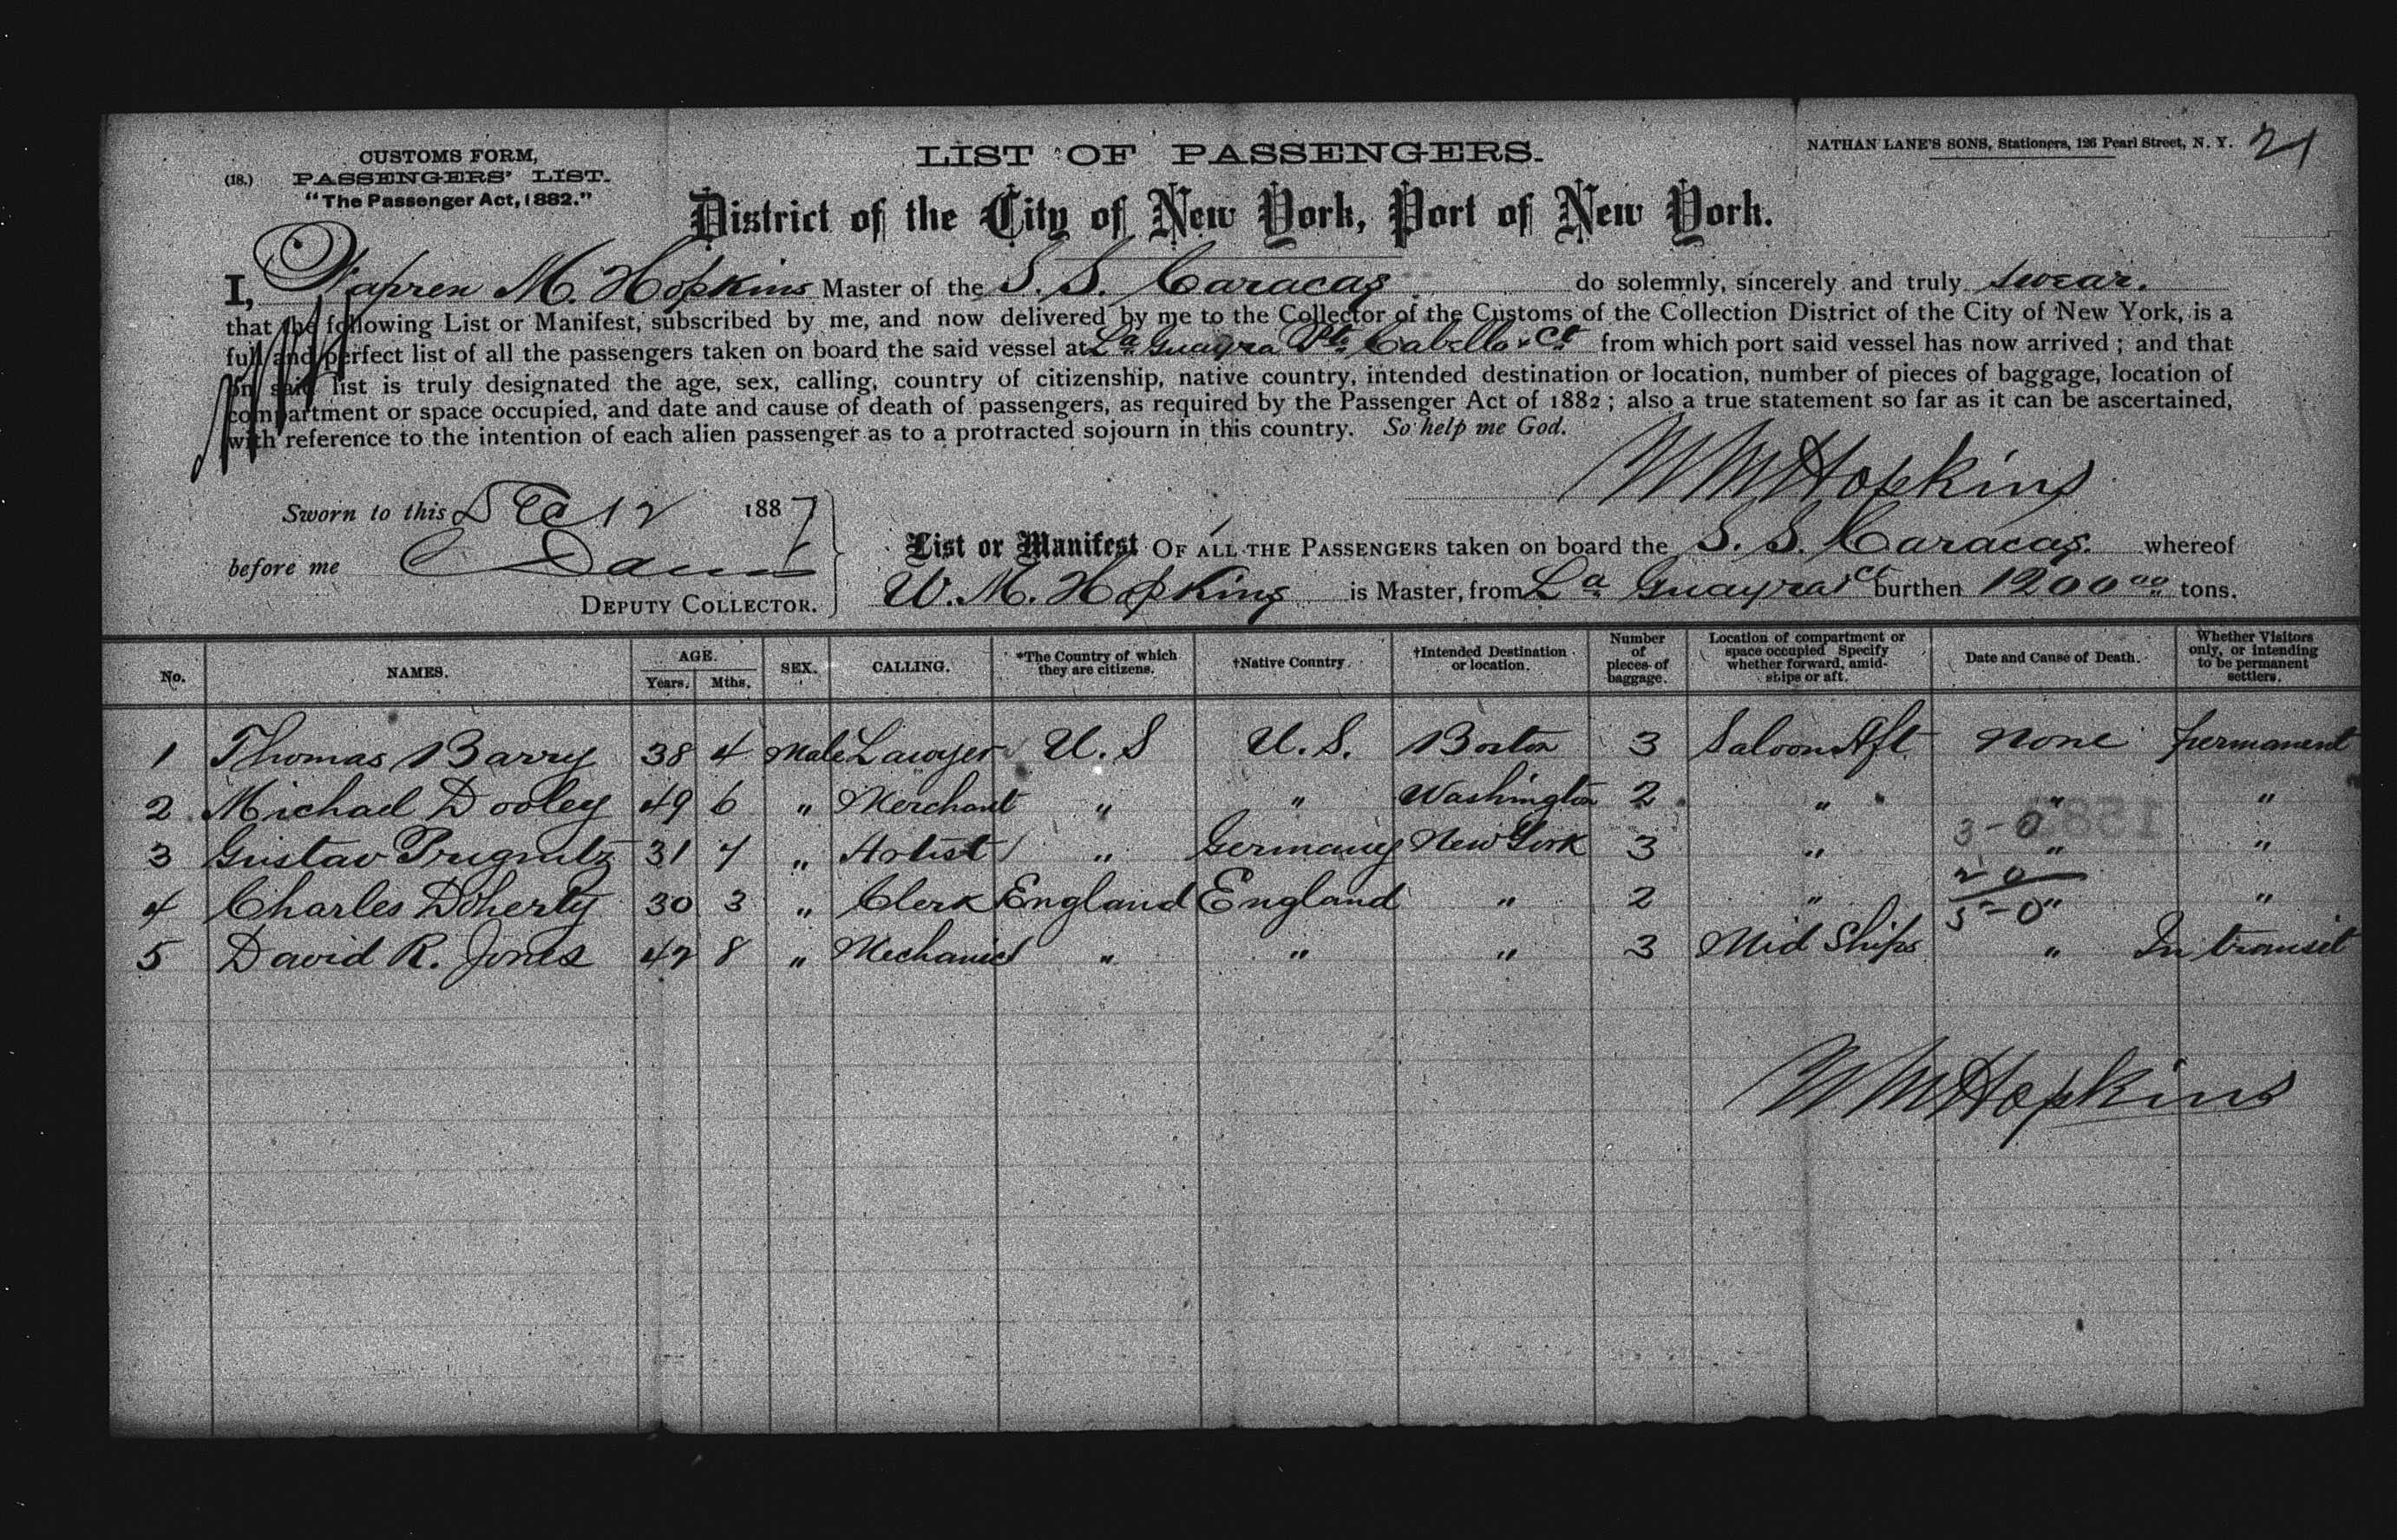 CUSTOMS FORM,
(18.) PASSENGERS' LIST.
"The Passenger Act, 1882."
LIST OF PASSENGERS.
NATHAN LANE'S SONS, Stationers, 126 Pearl Street, N. Y. 21
District of the City of New York, Port of New York.
I, Warren M. Hopkins Master of the S. S. Caracas do solemnly, sincerely and truly swear.
that the following List or Manifest, subscribed by me, and now delivered by me to the Collector of the Customs of the Collection District of the City of New York, is a
full and perfect list of all the passengers taken on board the said vessel at La Guayra Pto Cabello & Ct from which port said vessel has now arrived; and that
on said list is truly designated the age, sex, calling, country of citizenship, native country, intended destination or location, number of pieces of baggage, location of
compartment or space occupied, and date and cause of death of passengers, as required by the Passenger Act of 1882; also a true statement so far as it can be ascertained,
with reference to the intention of each alien passenger as to a protracted sojourn in this country. So help me God.
W M Hopkins
Sworn to this Dec 12 1887
before me
DEPUTY COLLECTOR.
List or Manifest OF ALL THE PASSENGERS taken on board the S. S. Caracas. whereof
W. M. Hopkins is Master, from La Guayra & Ct burthen 1200 00 tons.
No. NAMES. AGE. Years. Mths. SEX. CALLING. *The Country of which they are citizens. †Native Country. †Intended Destination or location. Number of pieces of baggage. Location of compartment or space occupied Specify whether forward, amidships or aft. Date and Cause of Death. Whether Visitors only, or intending to be permanent settlers.
1 Thomas Barry 38 4 Male Lawyer U. S U. S. Boston 3 Saloon Aft None permanent
2 Michael Dooley 49 6 " Merchant " " Washington 2 " " "
3 Gustav 31 7 " Artist " Germany New York 3 " " "
4 Charles Doherty 30 3 " Clerk England England " 2 " " "
5 David R. Jones 42 8 " Mechanic " " " 3 Mid Ships " In transit
3-0
2 0
5-0
W M Hopkins